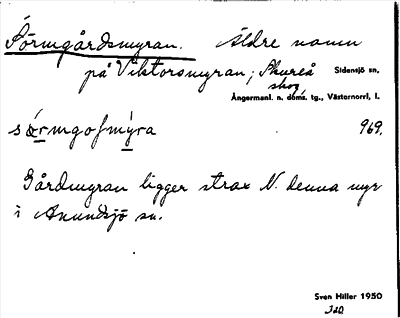 Sörmgårdsmyran. Äldre namn
på Viktorsmyran; Skureå
skog
Sidensjö sn,
Ångermanl. n. doms. tg., Västernorrl, l.
969.
Gårdmyran ligger strax N. denna myr
i Anundsjö sn.
Sven Hiller 1950